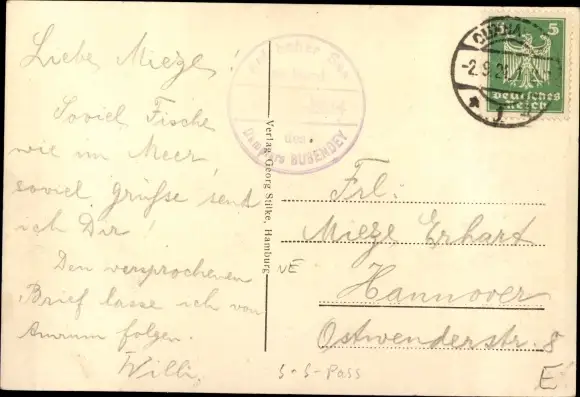 Liebe Mieze!
Soviel Fische
wie im Meer,
soviel grüße send
ich Dir!
Den versprochenen
Brief lasse ich von
Amrum folgen.
Willi
Auf hoher See
an Bord
des
Dampfers BUBENDEY
Verlag Georg Stilke, Hamburg
CUXHA
-2.9.2
5
Deutsches
Reich
Frl.
Mieze Erhart
Hannover
Ostwenderstr. 8
VE
S-S-Pass
E